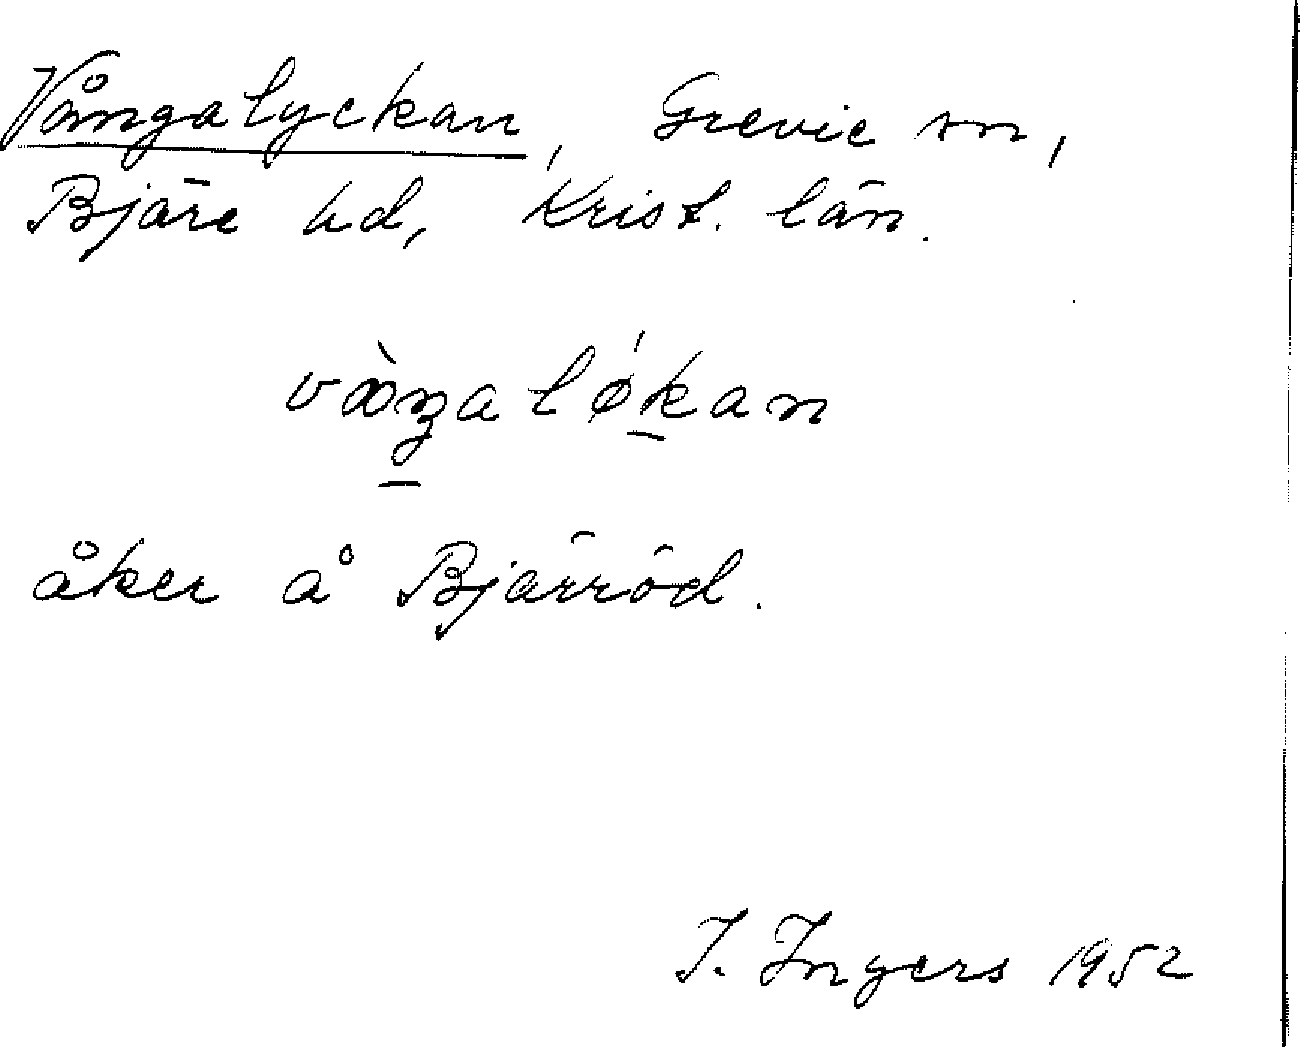 Vångalyckan, Grevie sn,
Bjäre hd, Krist. län.
åker å Bjärröd.
I. Ingers 1952